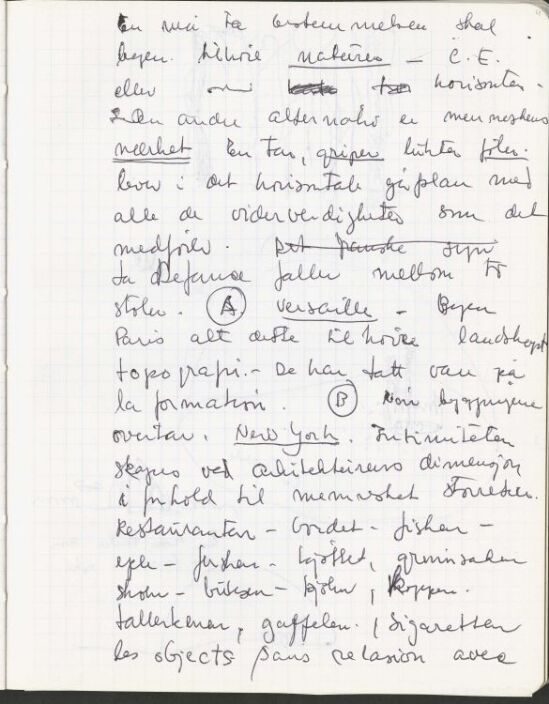 En må ta bestemmelsen skal
byen tilhøre naturen – C.E.
eller horisonten.
Den andre alternativ er menneskens
nærhet En tar, griper lukter føler.
lever i det horisontale gåplan med
alle de viderverdigheter som det
medfører. Det franske syn
La Defance faller mellom to
stoler. (A) Versaille – Byen
Paris alt dette tilhører landskapt
topografi. – De har tatt vare på
la formation. (B) Når bygningene
overtar. New York. Intimiteten
skapes ved arkitekturens dimensjon
i forhold til mennesket størrelse.
Restauranten – bordet – fisken –
eple – fisken – kjøttet, grønnsaken
skoen – buksen – kjolen, koppen.
tallerkenen, gaffelen, sigaretten
les objects sans relasion avec